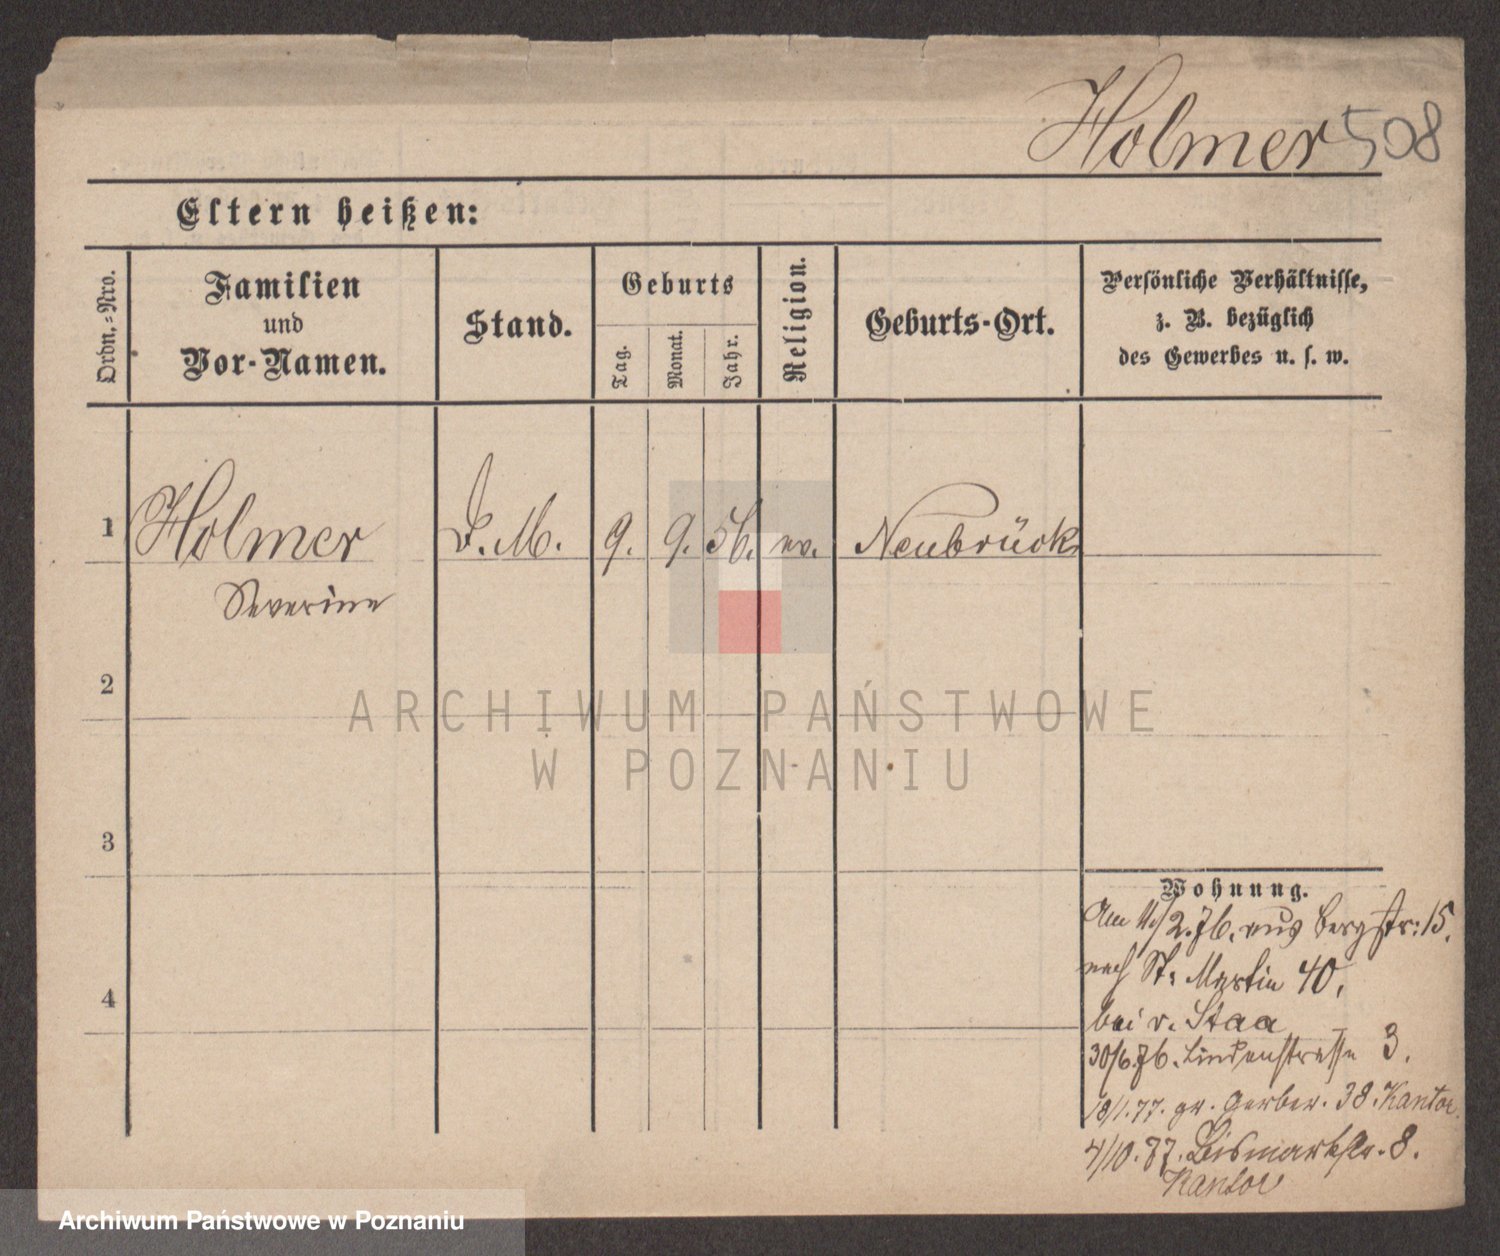 Holmer 508
Eltern heißen:
Ordn.-Nro.
Familien
und
Vor-Namen.
Stand.
Geburts
Tag.
Monat.
Jahr.
Religion.
Geburts-Ort.
Persönliche Verhältnisse,
z. B. bezüglich
des Gewerbes u. s. w.
1 Holmer D. M. 9. 9. 56. ev. Neubrück
Severine
2
ARCHIWUM PAŃSTWOWE
W POZNANIU
3
Wohnung.
Am /2.76. aus Bergstr: 15.
nach St. Martin 40,
bei v. Staa
30/6.76. Lindenstrasse 3.
18/1.77. gr. Gerber. 38. Kantor
4/10.77. Bismarkstr. 8.
Kantor
4
Archiwum Państwowe w Poznaniu